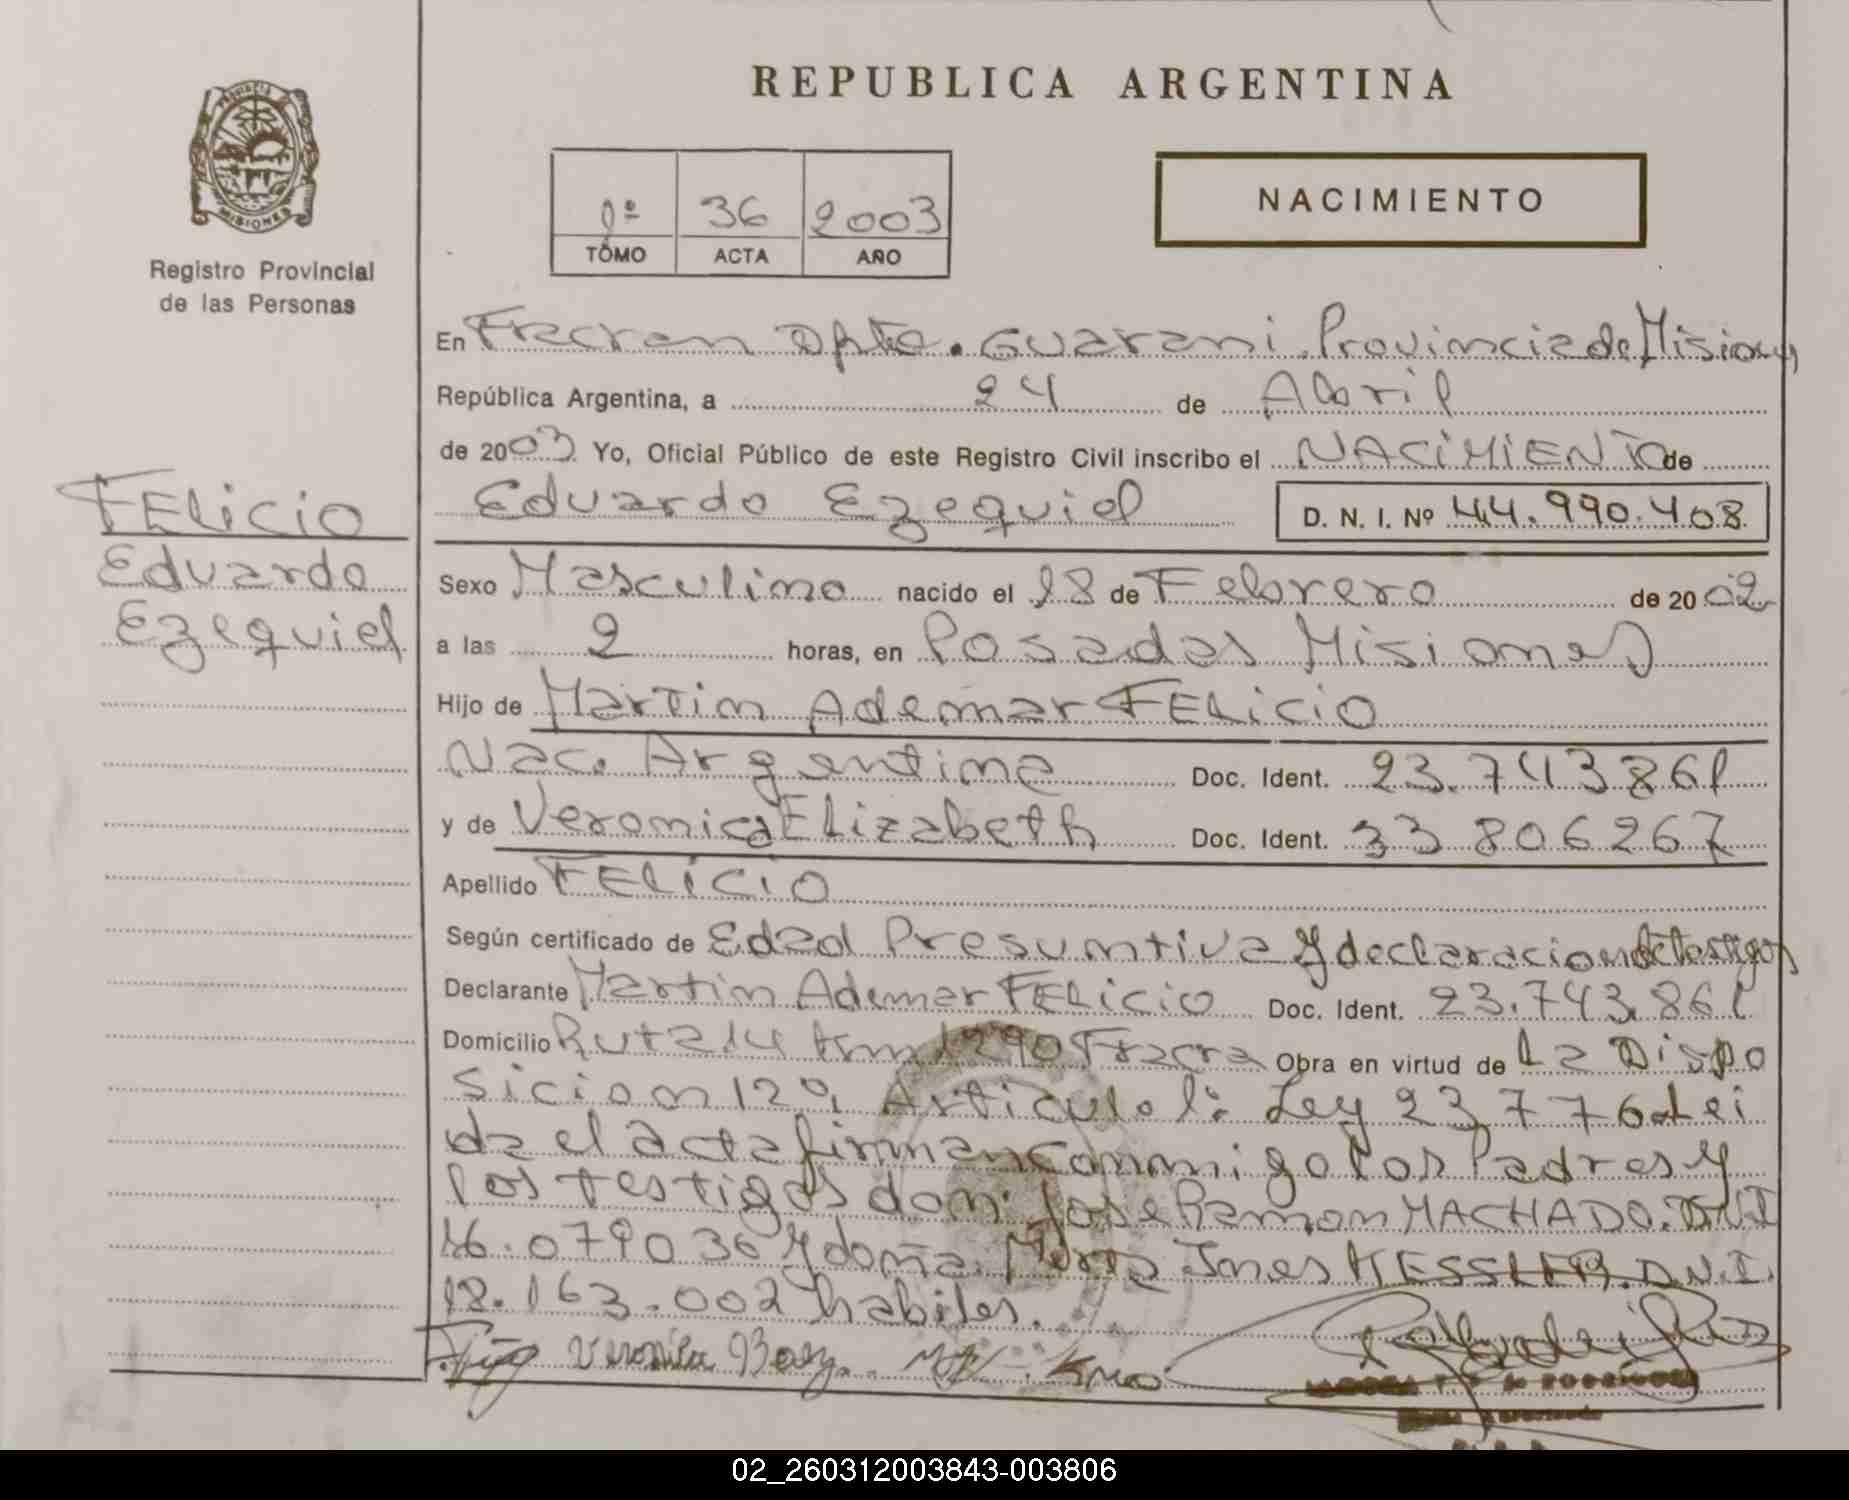 REPUBLICA ARGENTINA
PROVINCIA DE MISIONES
Registro Provincial
de las Personas
1º 36 2003
TOMO ACTA AÑO
NACIMIENTO
En Fracran Dpto. Guarani Provincia de Misiones
República Argentina, a 24 de Abril
de 2003 Yo, Oficial Público de este Registro Civil inscribo el NACIMIENTO de
Eduardo Ezequiel D. N. I. Nº 44.990.408
FELICIO
Eduardo
Ezequiel
Sexo Masculino nacido el 18 de Febrero de 2002
a las 2 horas, en Posadas Misiones
Hijo de Martin Ademar FELICIO
Nac. Argentina Doc. Ident. 23.743861
y de Veronica Elizabeth Doc. Ident. 33 806267
Apellido FELICIO
Según certificado de Edad Presuntiva y declaracion de testigos
Declarante Martin Ademar FELICIO Doc. Ident. 23.743.861
Domicilio Ruta 14 Km 1290 Fracra Obra en virtud de la Dispo
sicion 120, Articulo 1: Ley 23776 Lei
da el acta firman conmigo los Padres y
los testigos don: Jose Ramon MACHADO. DNI
16.079036 y doña Mirta Ines KESSLER. D.N.I.
18.163.002 habiles.
Veronica
02_260312003843-003806